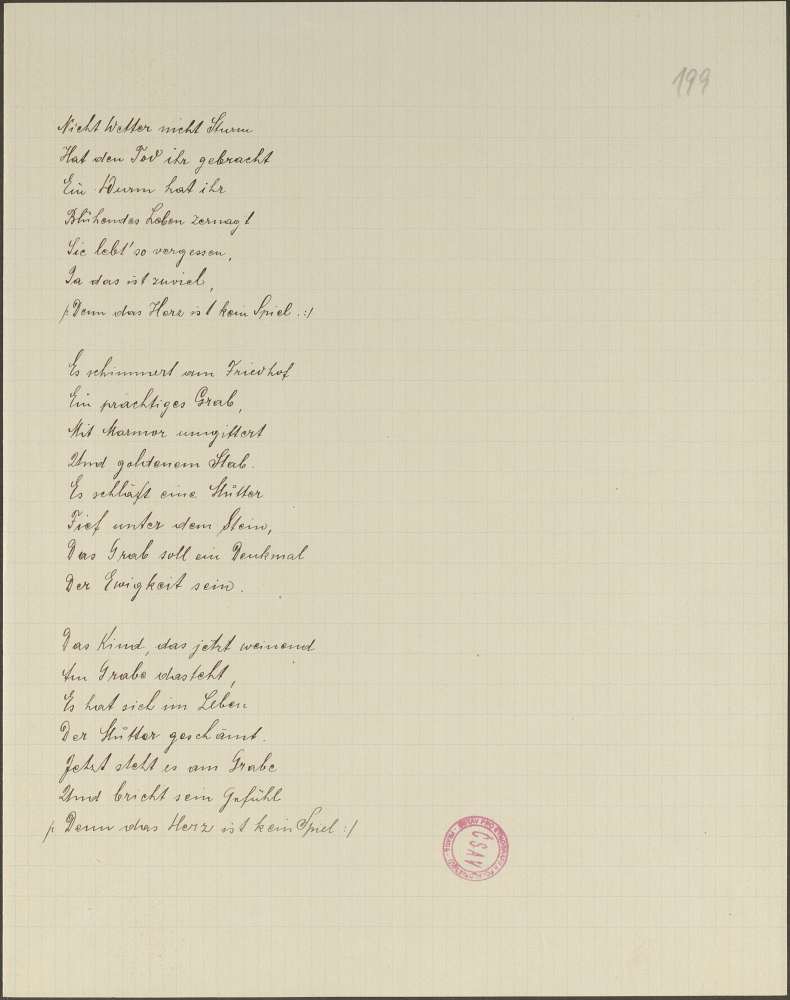 199
Nicht Wetter nicht Sturm
Hat den Tod ihr gebracht
Ein Wurm hat ihr
Blühendes Leben zernagt
Sie lebt' so vergessen,
Ja das ist zuviel,
/: Denn das Herz ist kein Spiel. :/
Es schimmert am Friedhof
Ein prachtiges Grab,
Mit Marmor umgittert
Und goldenem Stab.
Es schläft eine Mutter
Tief unter dem Stein,
Das Grab soll ein Denkmal
Der Ewigkeit sein.
Das Kind, das jetzt weinend
Am Grabe dasteht,
Es hat sich im Leben
Der Mutter geschämt.
Jetzt steht es am Grabe
Und bricht sein Gefühl
/: Denn das Herz ist kein Spiel :/
ÚSTAV PRO
ČSAV